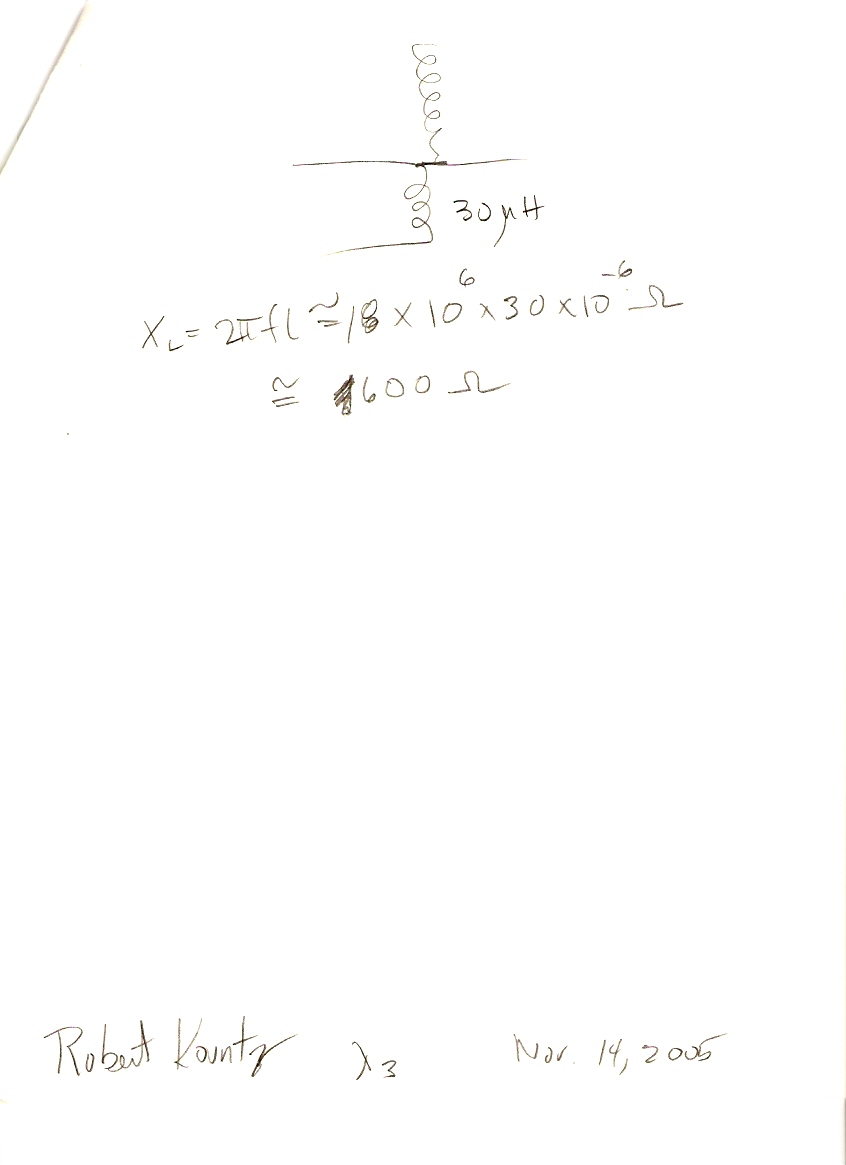 30 μH
X_L = 2πfL ≅ 18 × 10^6 × 30 × 10^-6 Ω
≅ 600 Ω
Robert Kountz λ3 Nov. 14, 2005